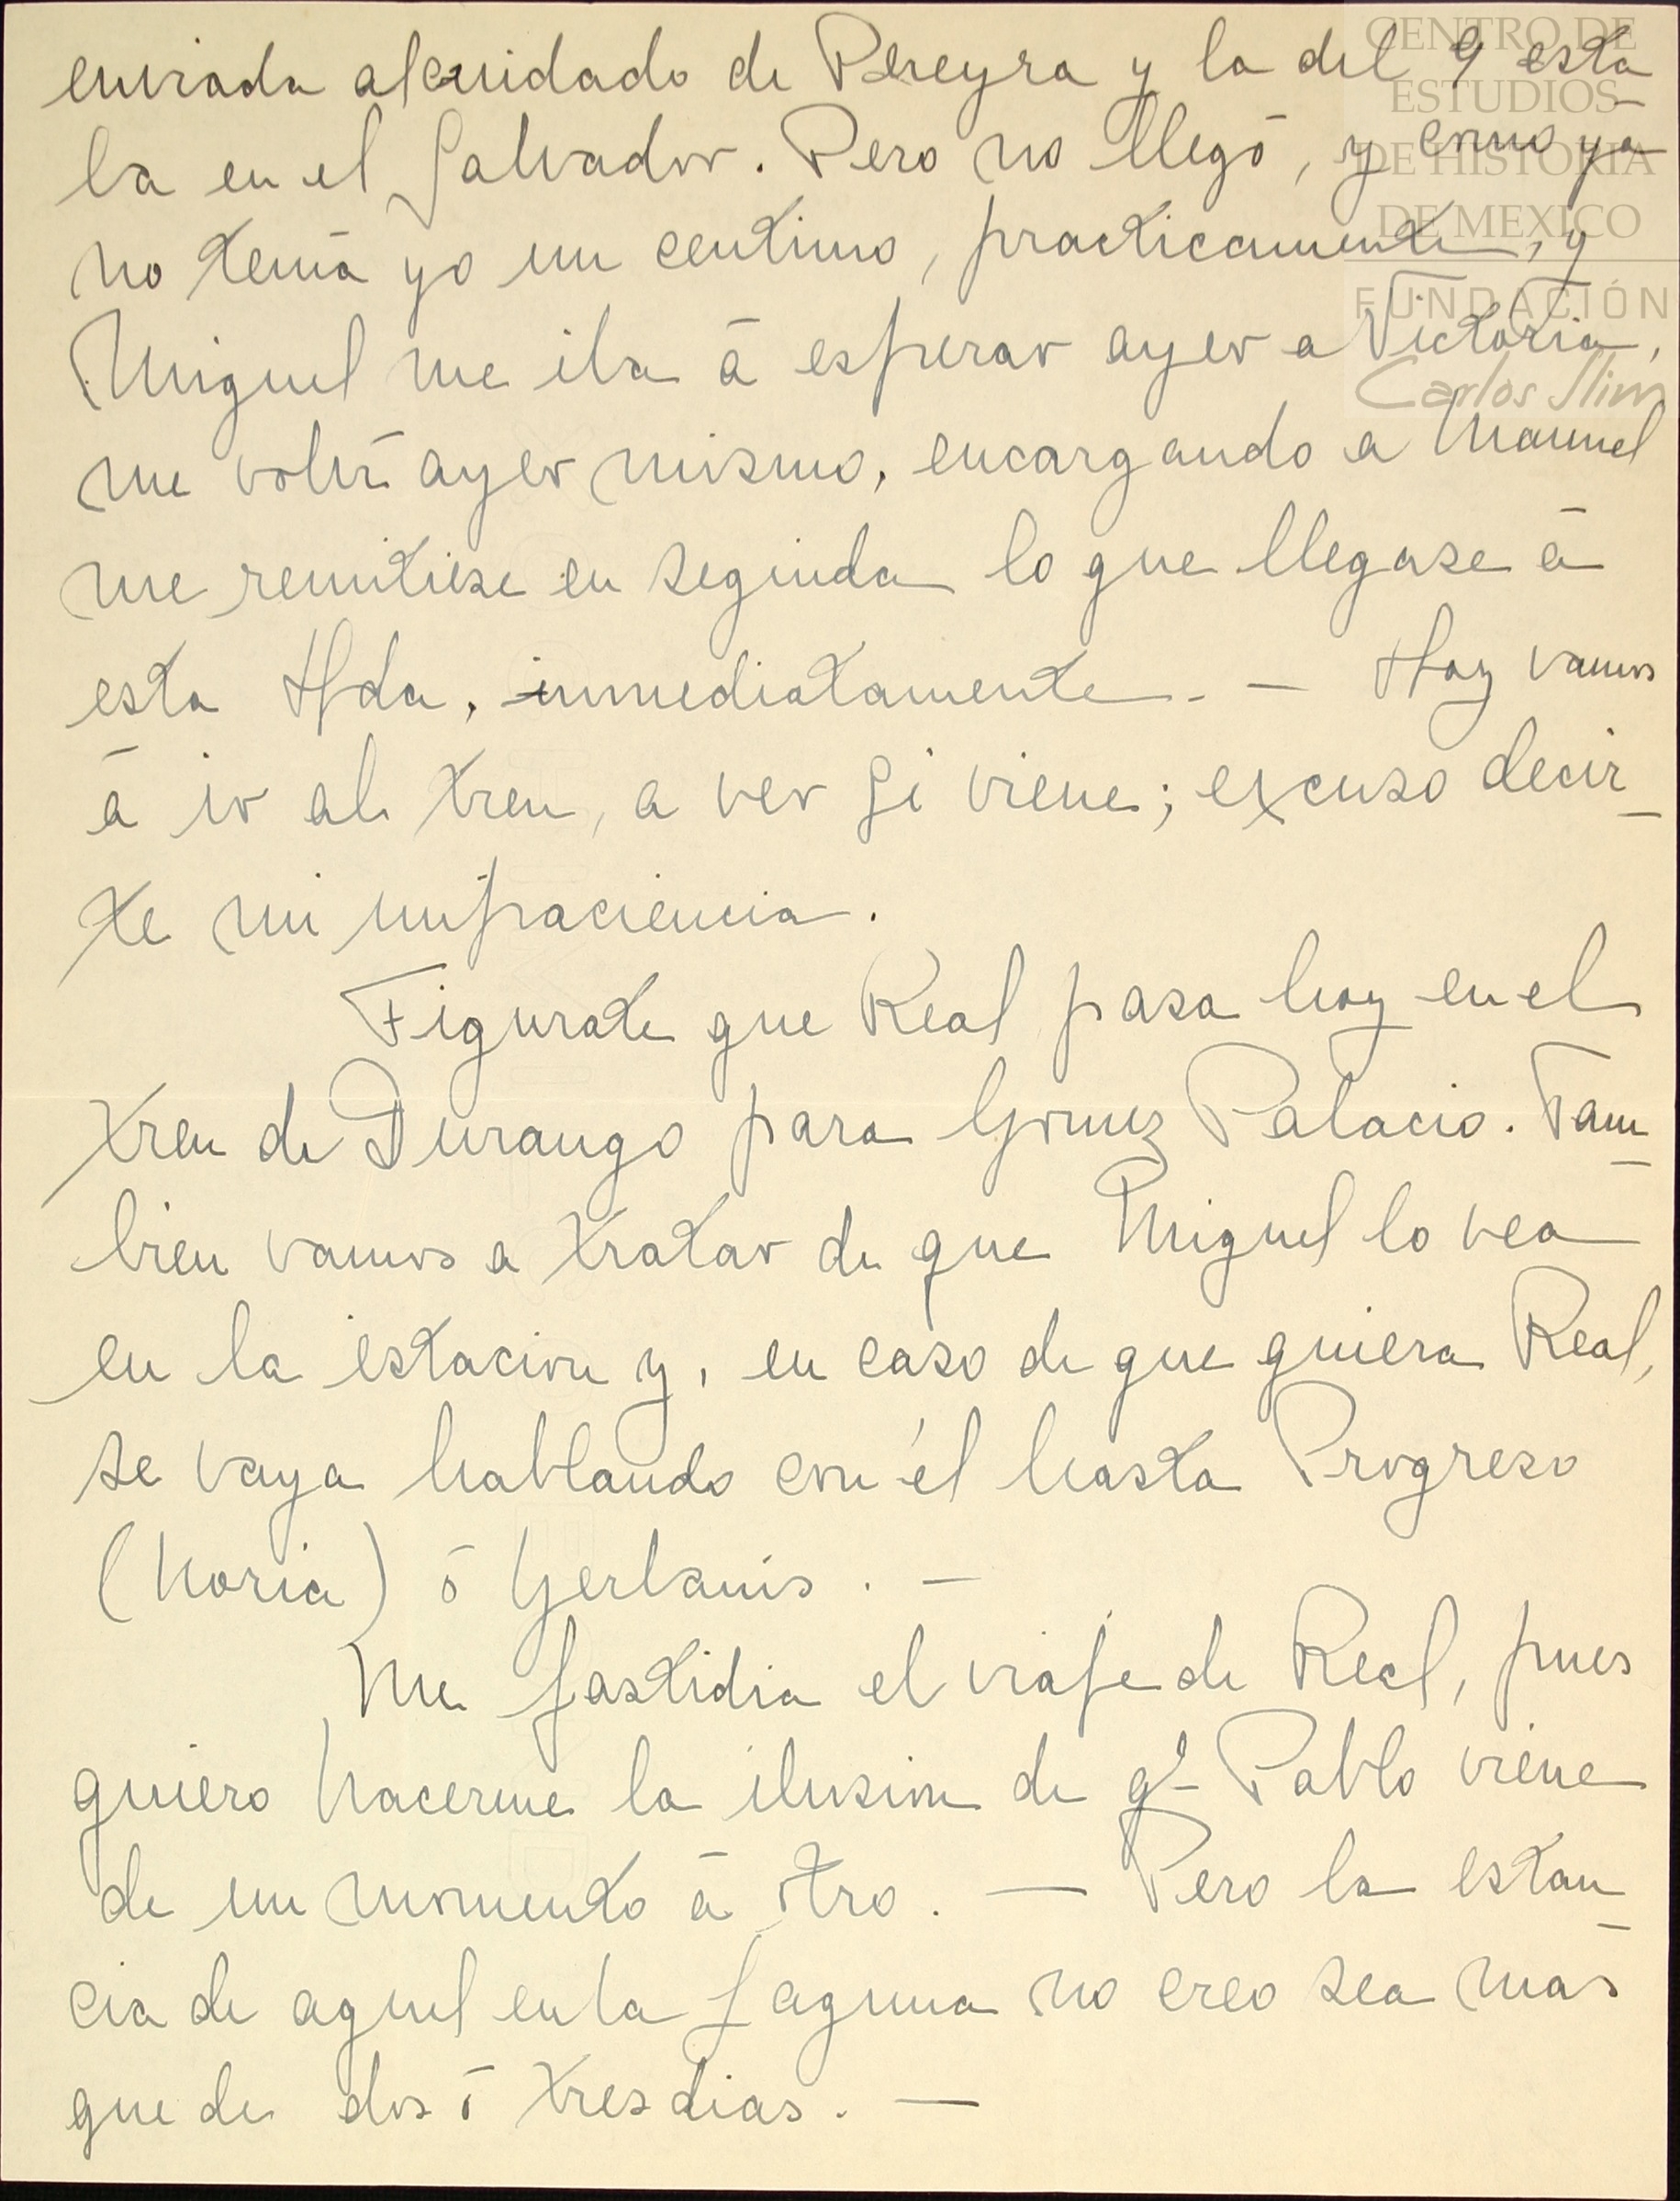 enviada al cuidado de Pereyra y la del 9 esta-
ba en el Salvador. Pero no llegó, y como ya
no tenía yo un centimo, practicamente, y
Miguel me iba á esperar ayer a Victoria,
me volví ayer mismo, encargando a Manuel
me remitiese en seguida lo que llegase á
esta Hda, inmediatamente. — Hoy vamos
á ir al tren, a ver si viene; excuso decir-
te mi impaciencia.
Figurate que Real pasa hoy en el
tren de Durango para Gomez Palacio. Tam-
bien vamos a tratar de que Miguel lo vea
en la estacion y, en caso de que quiera Real,
se vaya hablando con él hasta Progreso
(Noria) ó Gerbanis. —
Me fastidia el viaje de Real, pues
quiero hacerme la ilusion de qe Pablo viene
de un momento á otro. — Pero la estan-
cia de aquel en la Laguna no creo sea mas
que de dos ó tres dias. —
CENTRO DE
ESTUDIOS
DE HISTORIA
DE MEXICO
FUNDACIÓN
Carlos Slim